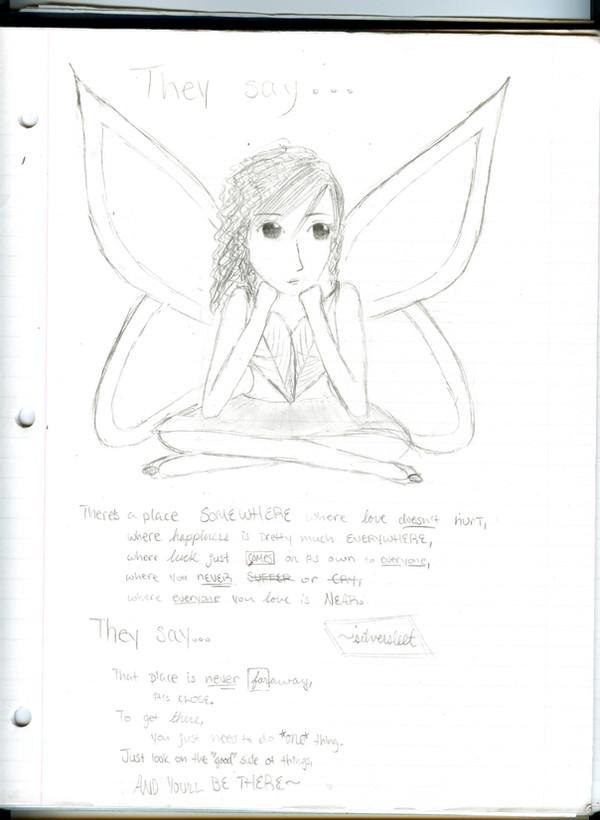 They say...
There's a place SOMEWHERE where love doesn't HURT,
where happiness is pretty much EVERYWHERE,
where luck just COMES on its own to everyone,
where you NEVER SUFFER or CRY,
where everyone you love is NEAR.
They say...
~silversleet
That place is never far away,
it's CLOSE.
To get there,
you just need to do *one* thing.
Just look on the "good" side of things,
AND YOU'LL BE THERE~